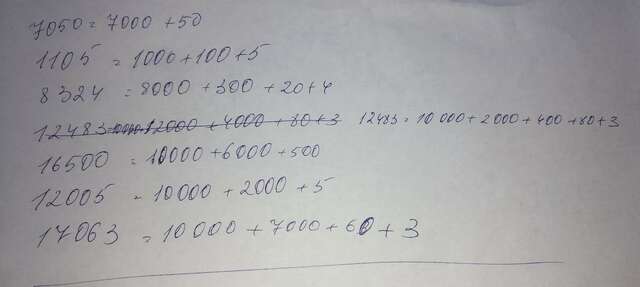 7050 = 7000 + 50
1105 = 1000 + 100 + 5
8324 = 8000 + 300 + 20 + 4
12483 12000 + 4000 + 80 + 3 12483 = 10 000 + 2000 + 400 + 80 + 3
16500 = 10000 + 6000 + 500
12005 = 10000 + 2000 + 5
17063 = 10 000 + 7000 + 60 + 3